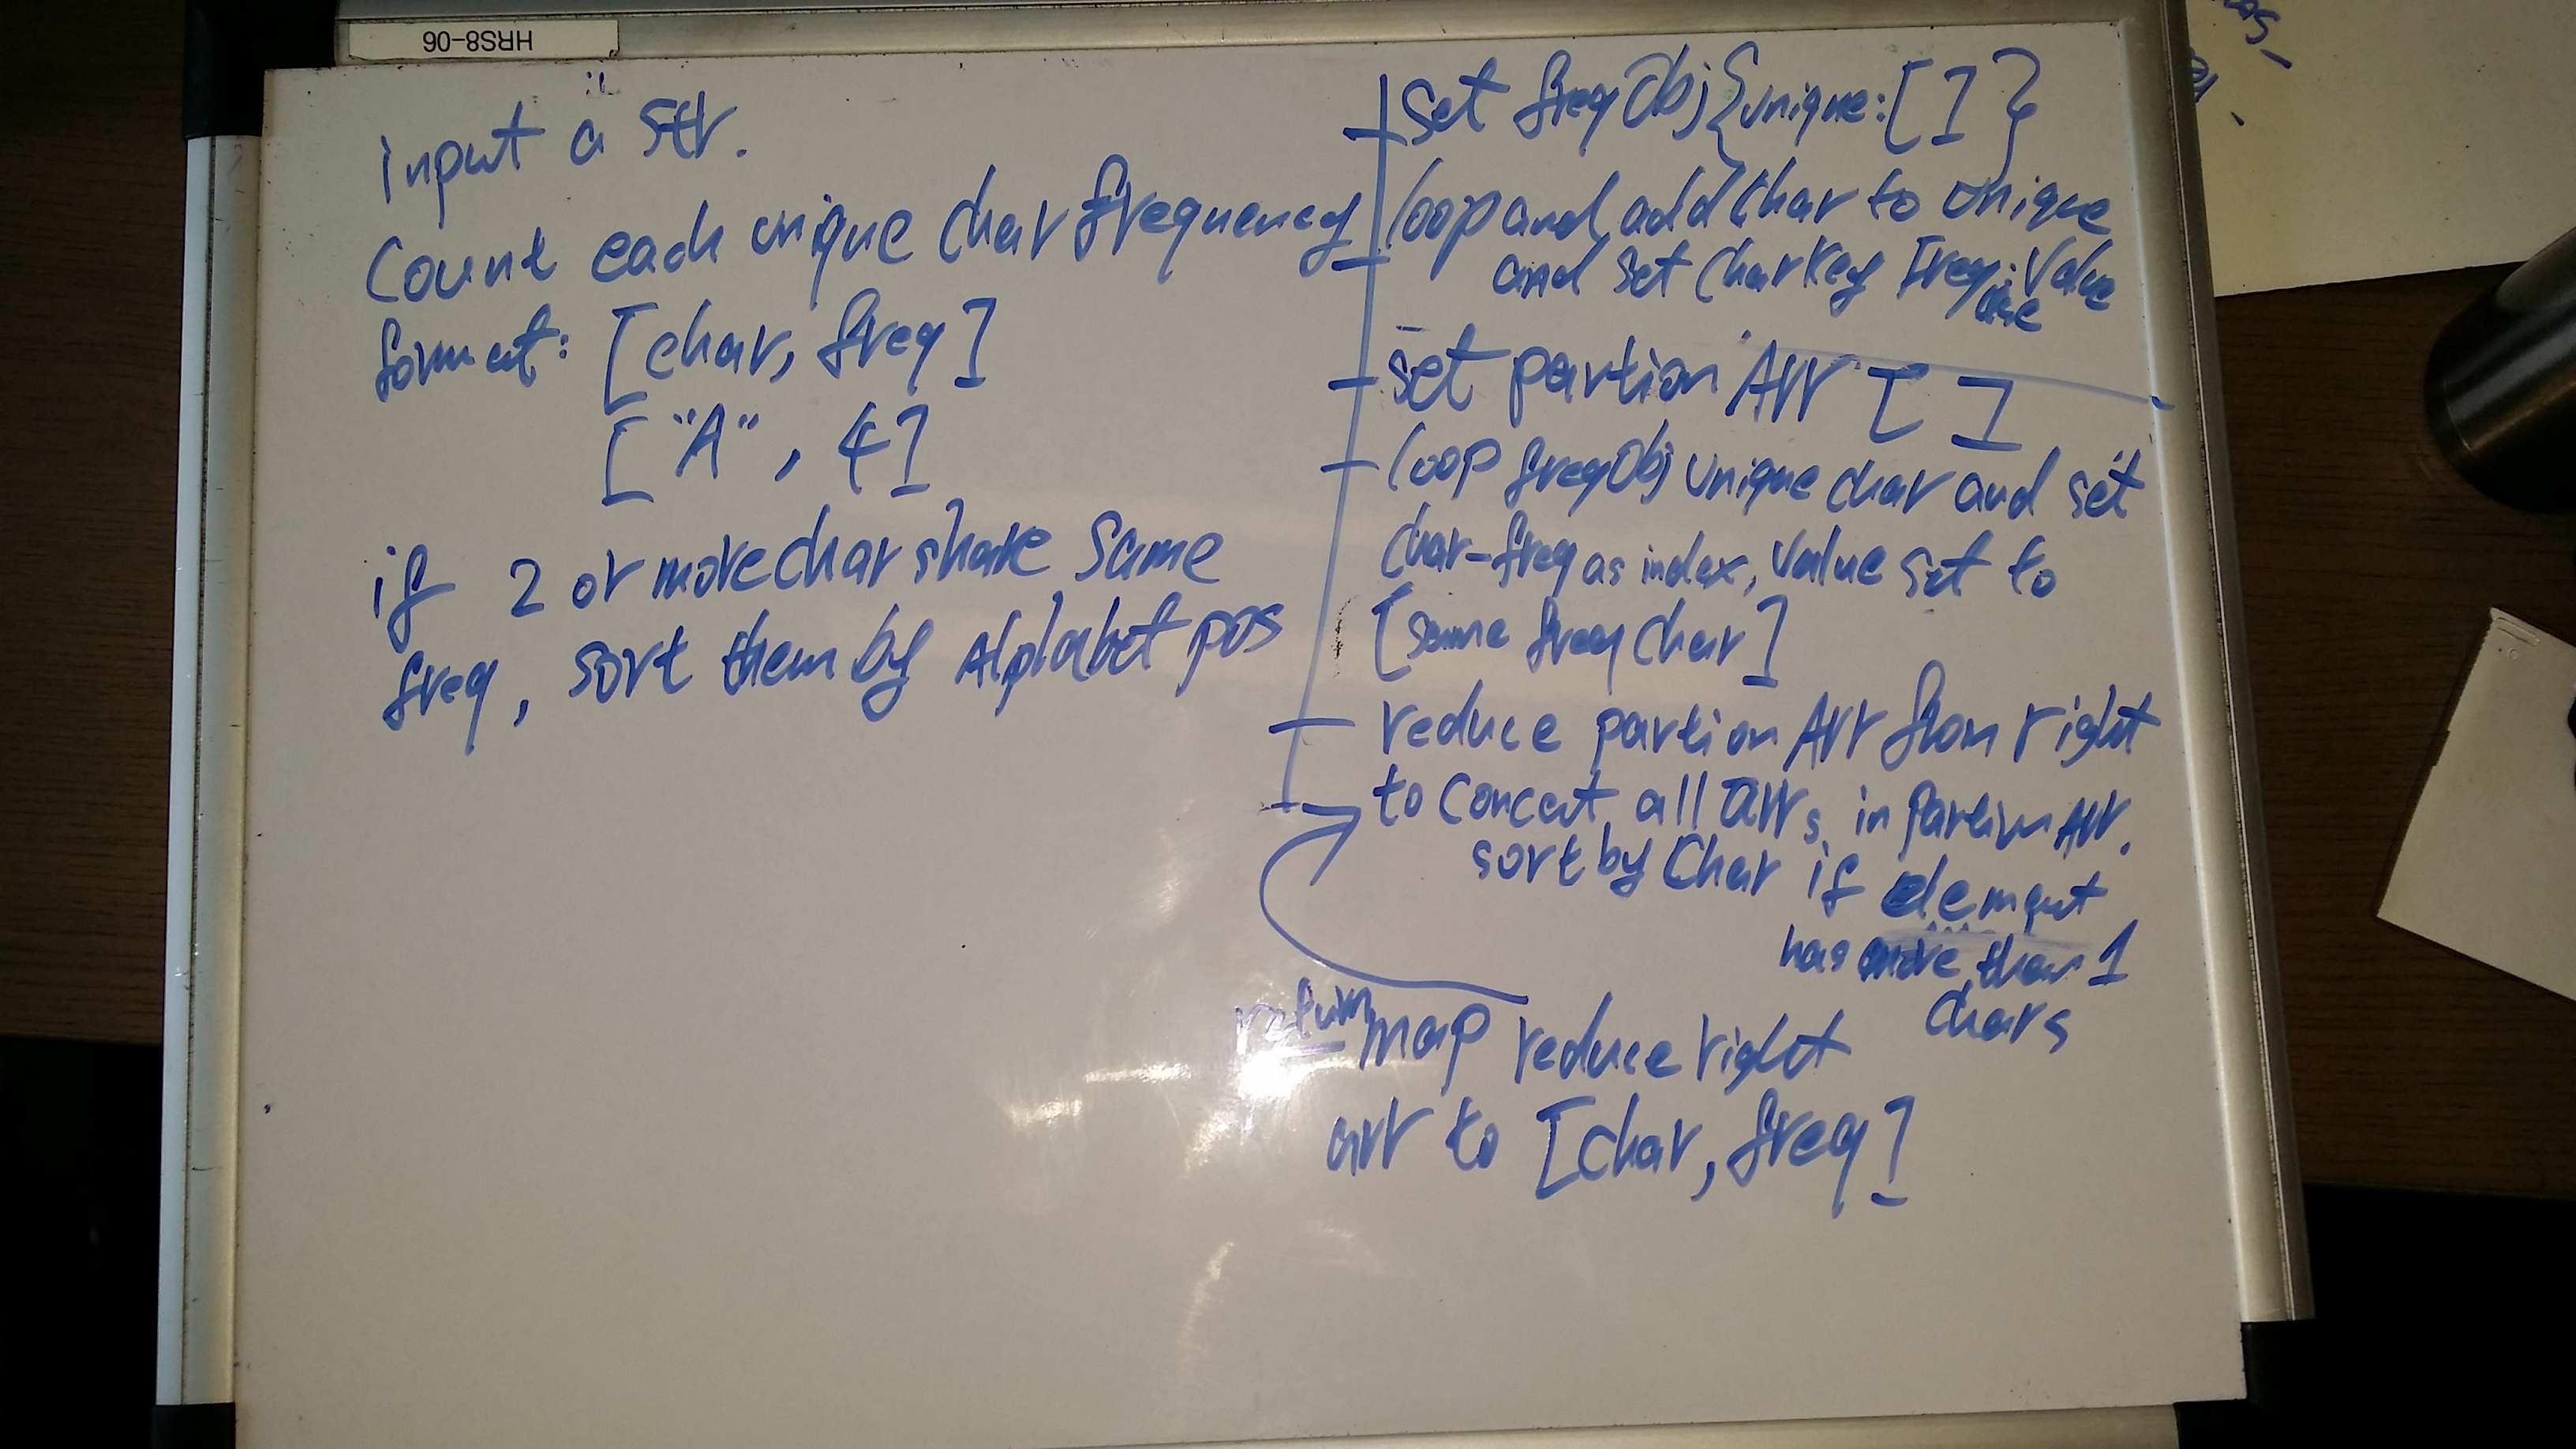 HRS8-06
input a str.
Count each unique char frequency
format: [char, freq]
["A", 4]
if 2 or more char share same
freq, sort them by Alphabet pos
set freqObj{unique:[]}
loop and add char to unique
and set charkey freq: value
set partion Arr []
loop freqObj unique char and set
char-freq as index, value set to
[same freq char]
reduce partion Arr from right
to concat all arrs in partion Arr.
sort by char if element
has more than 1
chars
return map reduce right
arr to [char, freq]